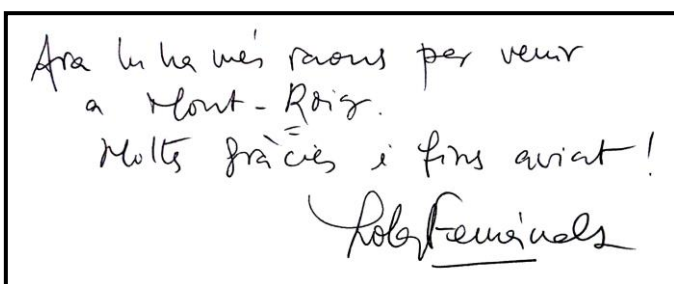 Ara hi ha més raons per venir
a Mont-Roig.
Moltes gràcies i fins aviat!